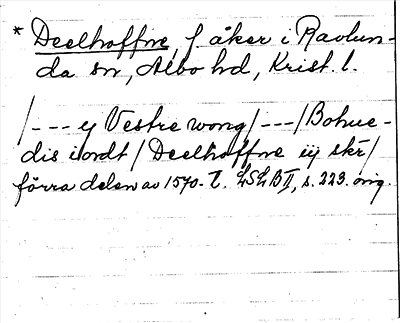 * Deelhoffne, f. åker i Ravlun-
da sn, Albo hd, Krist. l.
/--- ej Vestre wong/---/Bohue-
dis iordt/Deelhoffne iij skr/
förra delen av 1570-t. LSLB II, s. 223. orig.